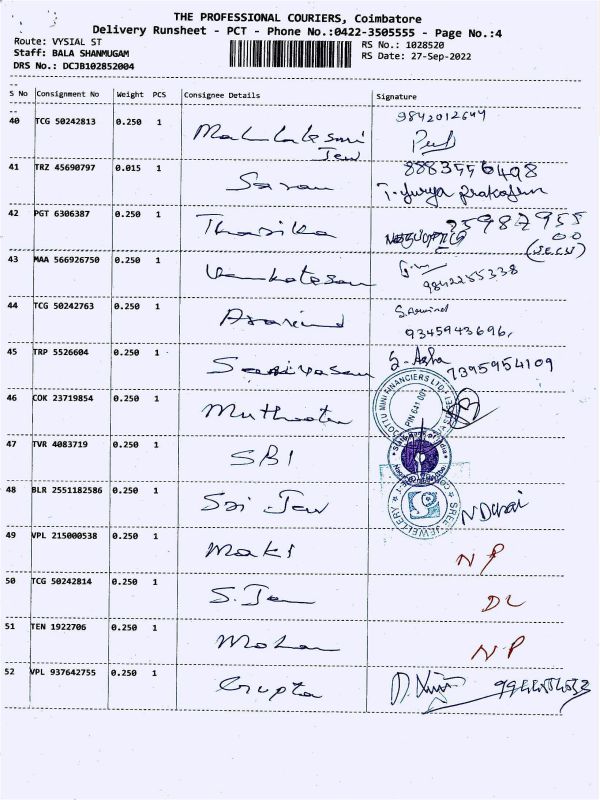 THE PROFESSIONAL COURIERS, Coimbatore
Delivery Runsheet - PCT - Phone No.:0422-3505555 - Page No.:4
Route: VYSIAL ST
RS No.: 1028520
Staff: BALA SHANMUGAM
RS Date: 27-Sep-2022
DRS No.: DCJB102852004
S No Consignment No Weight PCS Consignee Details Signature
40 TCG 50242813 0.250 1 9842012644
41 TRZ 45690797 0.015 1 Saran 8883556498
T. Surya prakash
42 PGT 6306387 0.250 1 Tharika
43 MAA 566926750 0.250 1 Venkatesan 9842255338
44 TCG 50242763 0.250 1 Aravind S. Aravind
9345943696
45 TRP 5526604 0.250 1 S. Asha 7395954109
46 COK 23719854 0.250 1 PIN 641 001
47 TVR 4083719 0.250 1 SBI State Bank of India
48 BLR 2551182586 0.250 1 Sri Jew SREE JEWELLERY
49 VPL 215000538 0.250 1 NP
50 TCG 50242814 0.250 1 DL
51 TEN 1922706 0.250 1 Mohan NP
52 VPL 937642755 0.250 1 Gupta